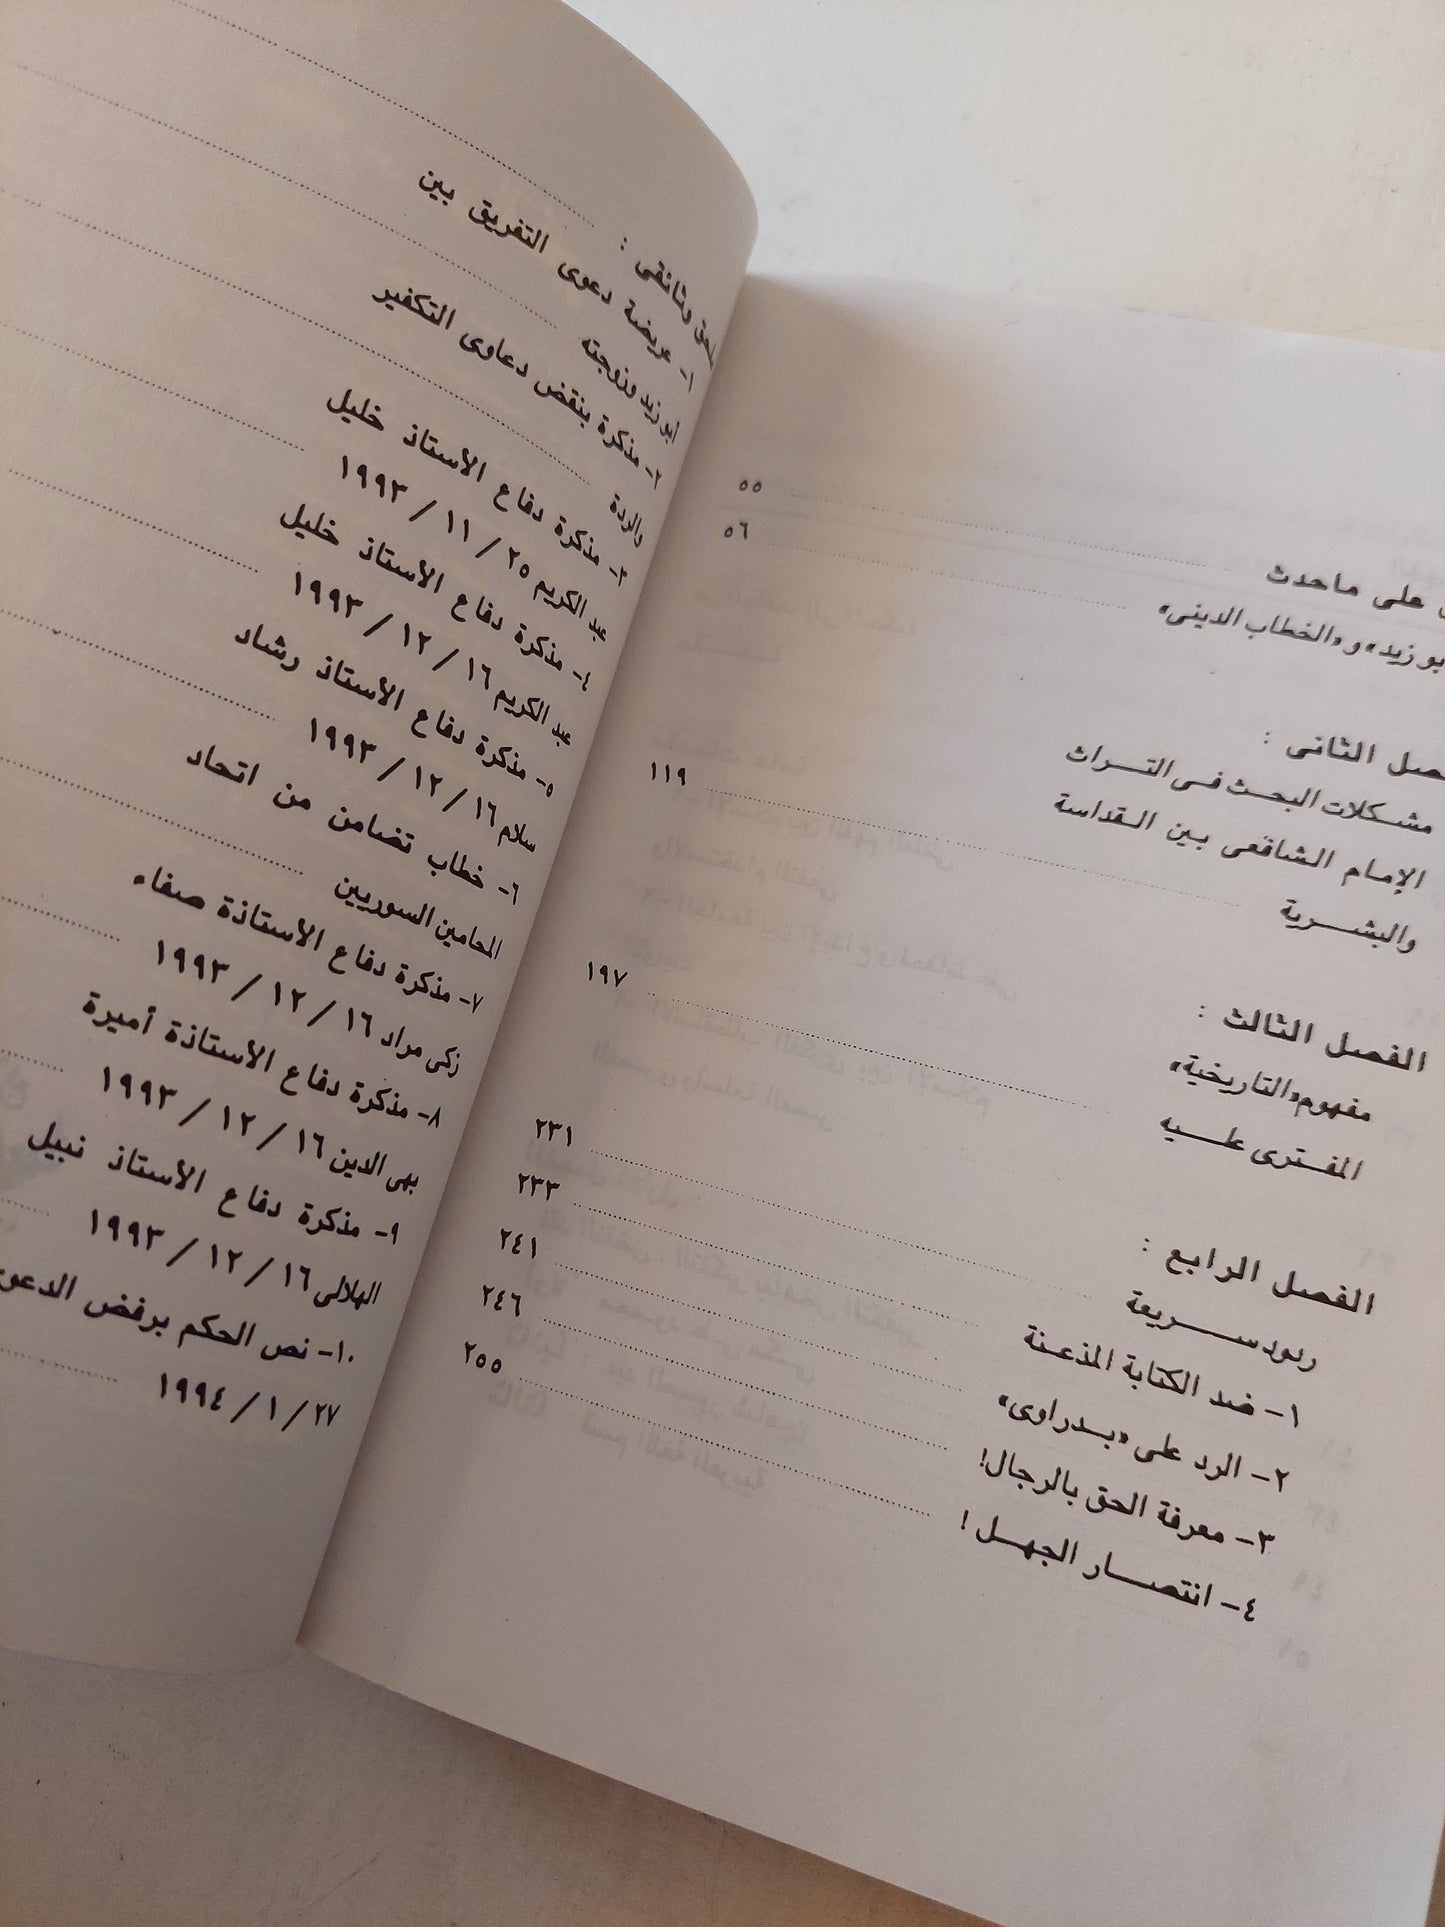 على ماحدث ٥٥
بو زيد» و «الخطاب الدينى» ٥٦
الثانى :
مشكلات البحث فى التراث
الإمام الشافعى بين القداسة
والبشرية ١١٩
الفصل الثالث :
مفهوم «التاريخية»
المفترى عليه ١٩٧
الفصل الرابع :
ردود سريعة ٢٣١
١- ضد الكتابة المذعنة ٢٣٣
٢- الرد على «بدراوى» ٢٤١
٣- معرفة الحق بالرجال! ٢٤٦
٤- انتصار الجهل! ٢٥٥
وثائقى :
١- عريضة دعوى التفريق بين
أبو زيد وزوجته
٢- مذكرة بنقض دعاوى التكفير
والردة
٣- مذكرة دفاع الأستاذ خليل
عبد الكريم ٢٥ / ١١ / ١٩٩٣
٤- مذكرة دفاع الأستاذ خليل
عبد الكريم ١٦ / ١٢ / ١٩٩٣
٥- مذكرة دفاع الأستاذ رشاد
سلام ١٦ / ١٢ / ١٩٩٣
٦- خطاب تضامن من اتحاد
المحامين السوريين
٧- مذكرة دفاع الأستاذة صفاء
زكى مراد ١٦ / ١٢ / ١٩٩٣
٨- مذكرة دفاع الأستاذة أميرة
بهى الدين ١٦ / ١٢ / ١٩٩٣
٩- مذكرة دفاع الأستاذ نبيل
الهلالى ١٦ / ١٢ / ١٩٩٣
١٠- نص الحكم برفض الدعوى
٢٧ / ١ / ١٩٩٤